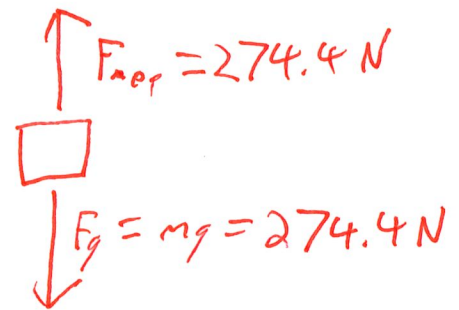 F_req = 274.4 N
F_g = mg = 274.4 N